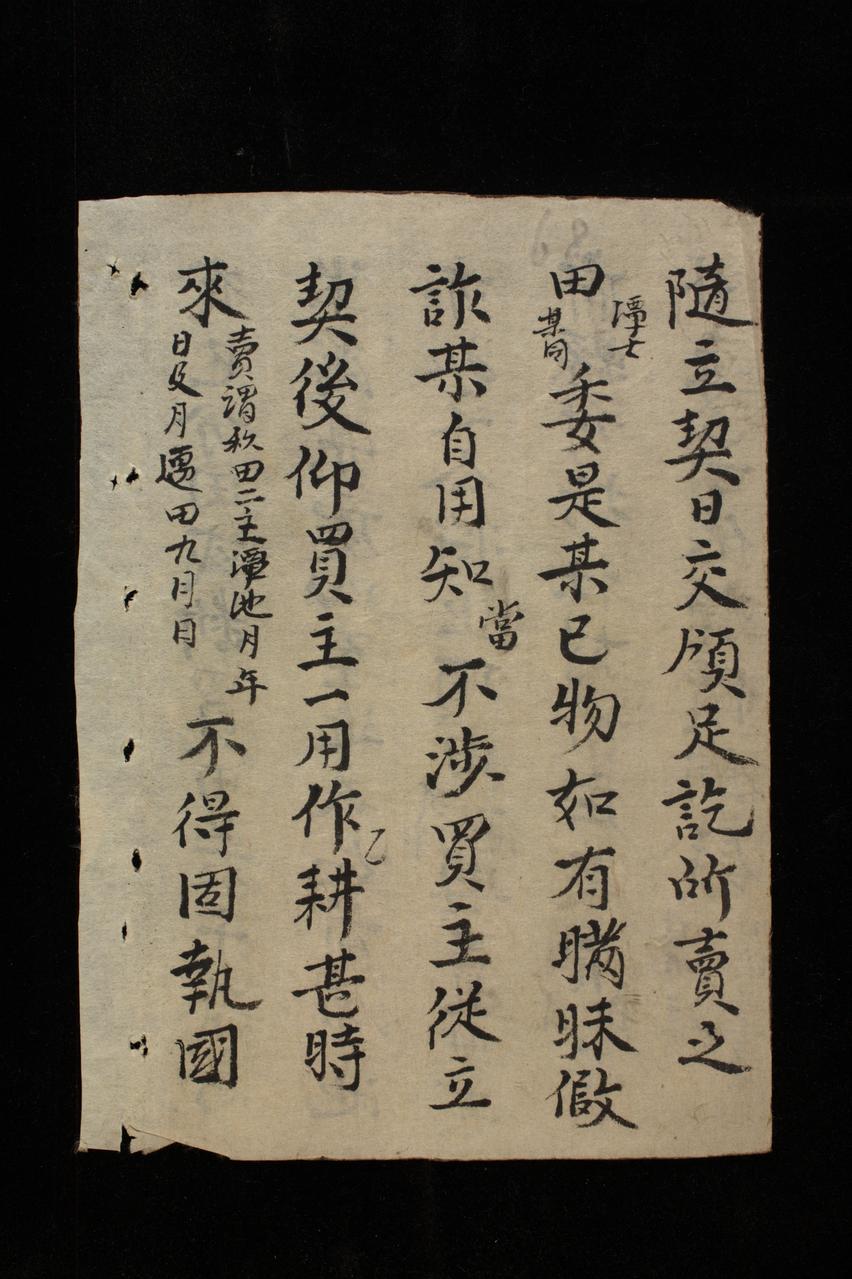 隨立契日交領足訖所賣之
田潭土某同委是某已物如有瞞昧假
詐某自用知當不涉買主從立
契後仰買主一用作耕甚時
來賣謂秋田二主潭池月年
日及月還田九月日不得固執國